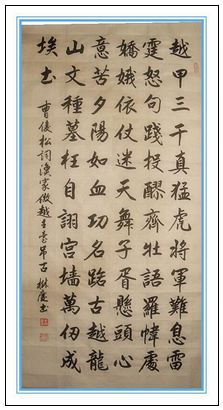 越甲三千真猛虎將軍難息雷
霆怒句踐投醪齊壯語羅幃處
嬌娥依仗迷天舞子胥懸頭心
意苦夕陽如血功名路古越龍
山文種墓枉自詡宮墻萬仞成
埃土
曹俊松詞漁家傲越王臺吊古 書